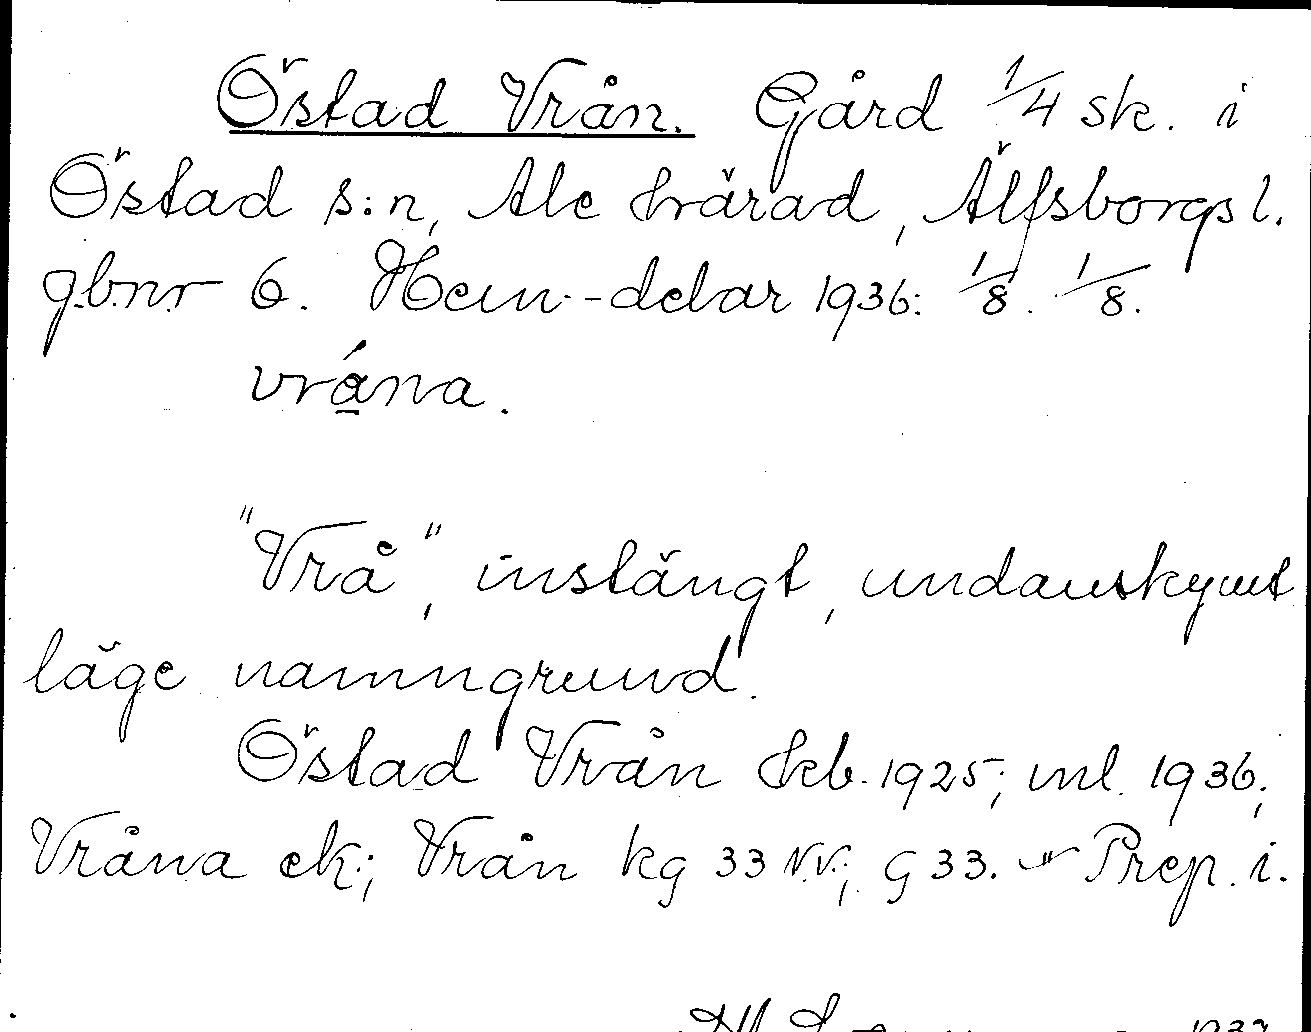 Östad Vrån. Gård 1/4 sk. i
Östad s:n, Ale härad, Älfsborgs l.
gb.nr 6. Hem.-delar 1936: 1/8. 1/8.
vrána.
"Vrå", instängt, undanskymt
läge namngrund.
Östad Vrån Skb. 1925; ml. 1936;
Vråna ek; Vrån kg 33 NV; G 33. Prep. i.